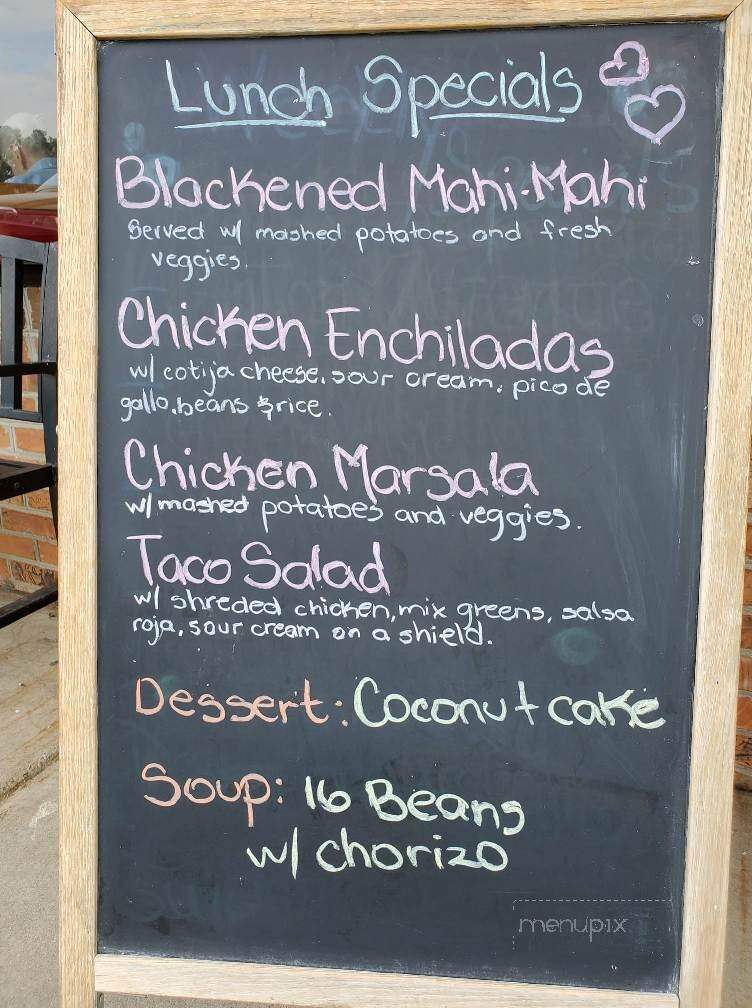 Lunch Specials
Blackened Mahi-Mahi
Served w/ mashed potatoes and fresh
veggies.
Chicken Enchiladas
w/ cotija cheese, sour cream, pico de
gallo, beans & rice.
Chicken Marsala
w/ mashed potatoes and veggies.
Taco Salad
w/ shreded chicken, mix greens, salsa
roja, sour cream on a shield.
Dessert: Coconut cake
Soup: 16 Beans
w/ chorizo
menupix